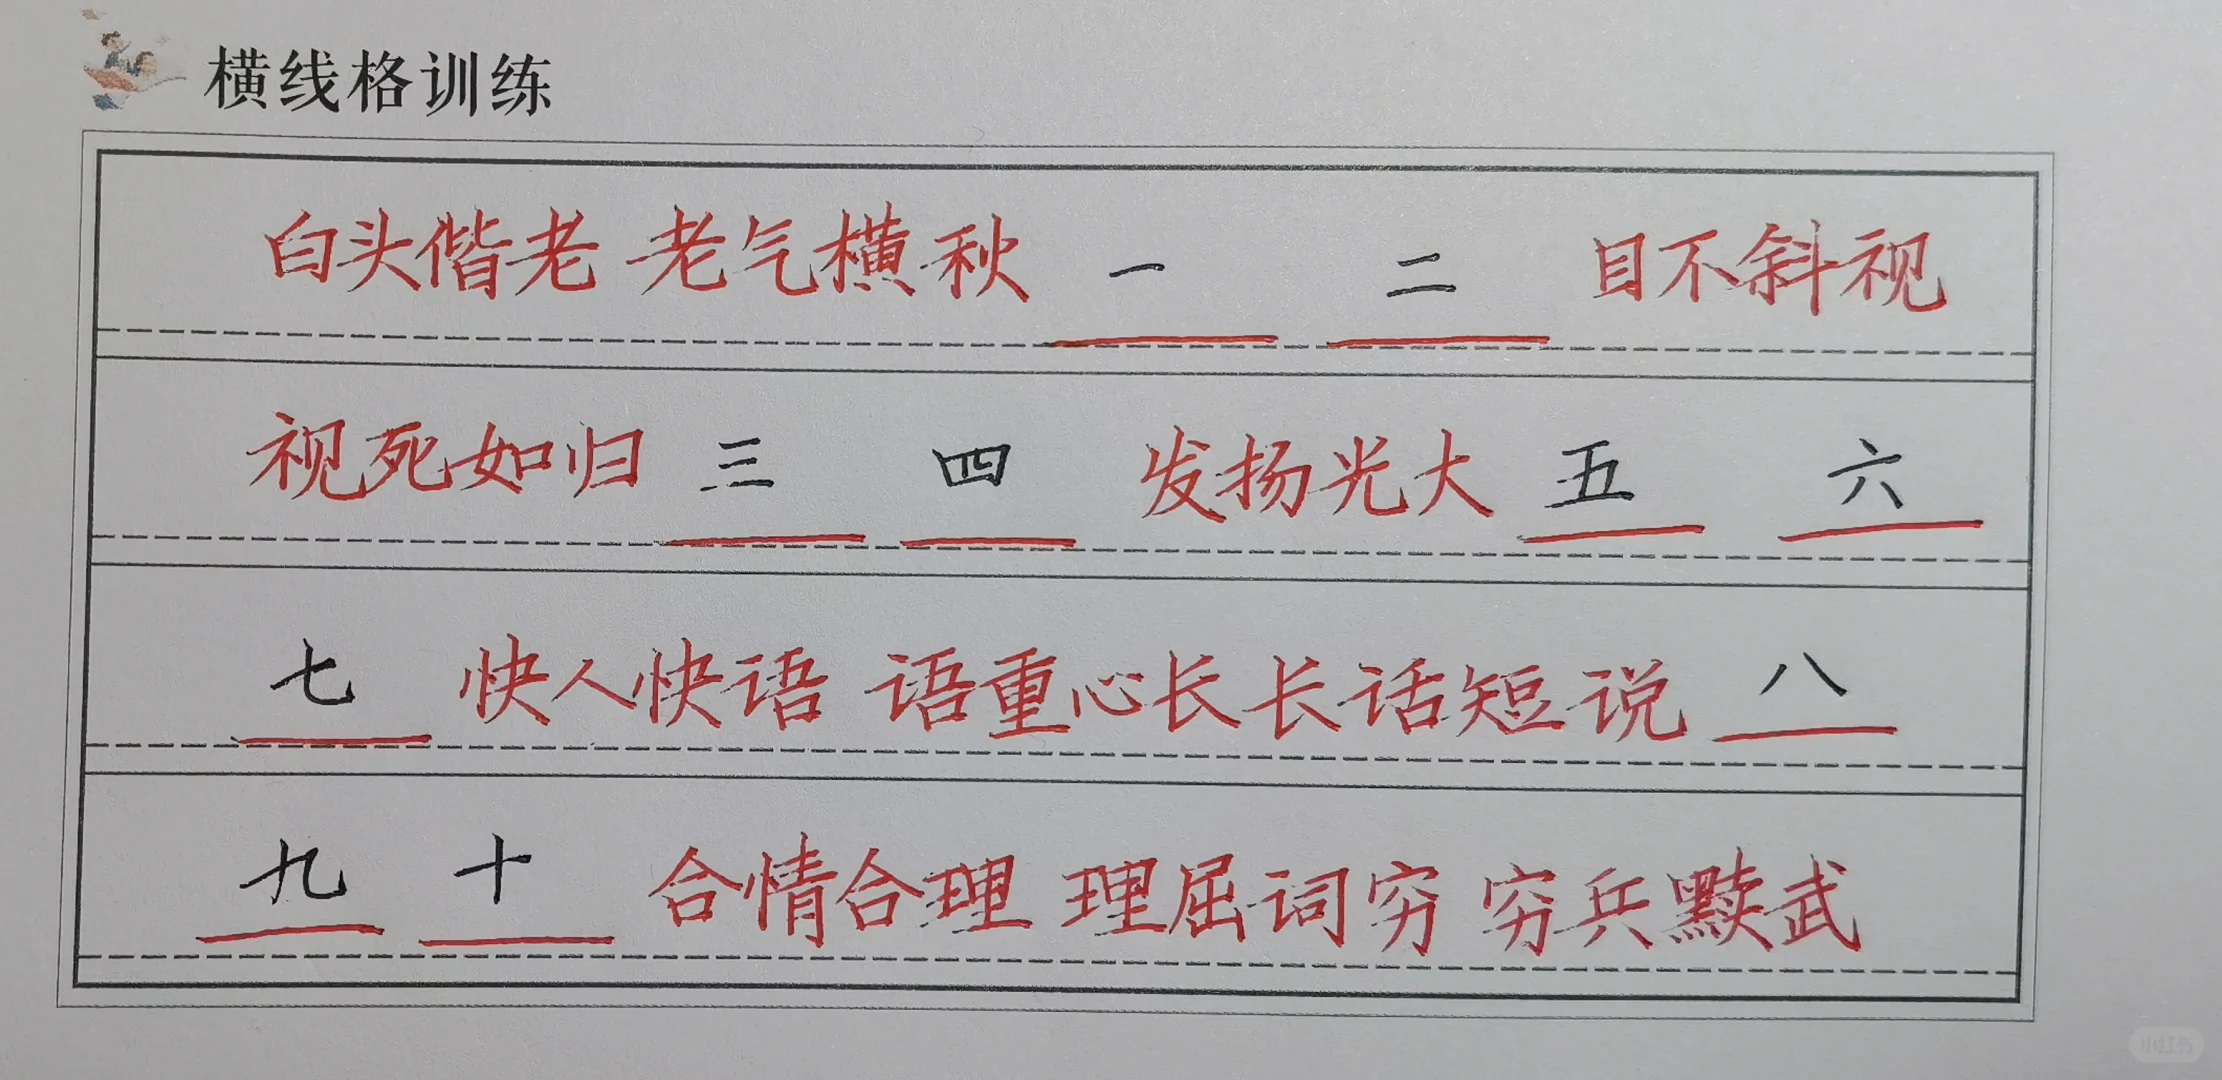 横线格训练
白头偕老 老气横秋 一 二 目不斜视
视死如归 三 四 发扬光大 五 六
七 快人快语 语重心长 长话短说 八
九 十 合情合理 理屈词穷 穷兵黩武
小红书